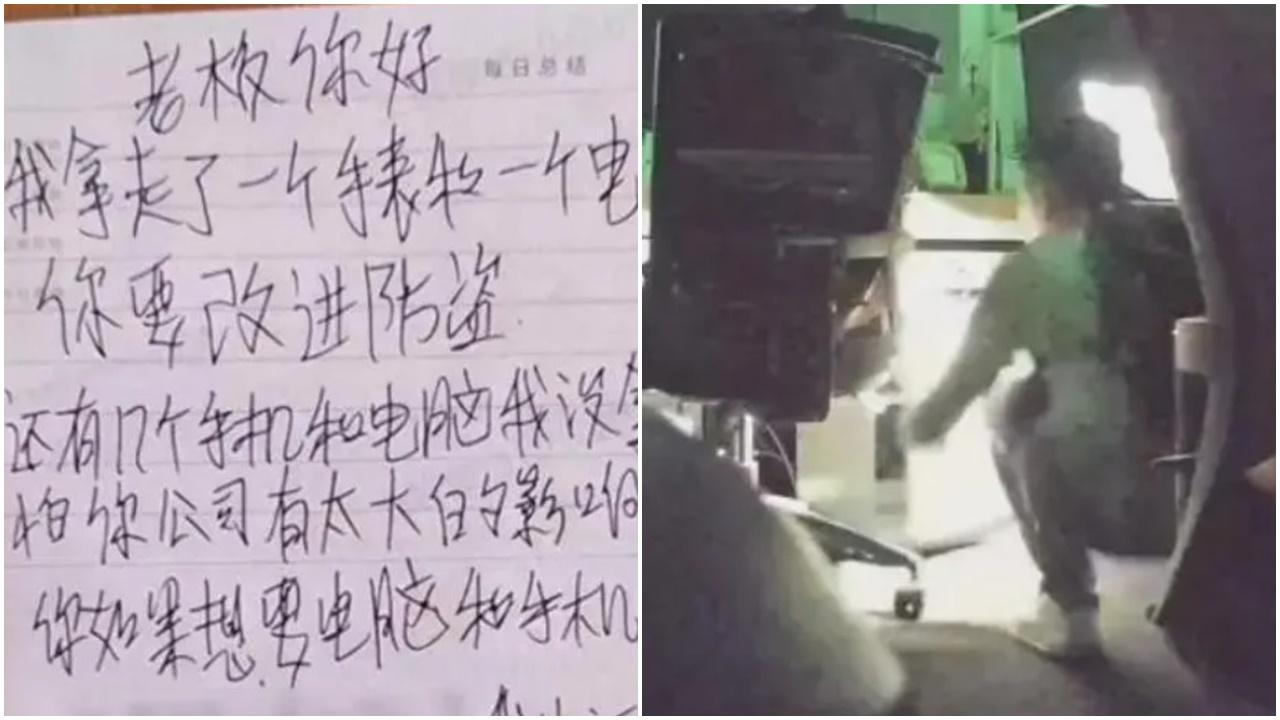 老板你好
每日总结
我拿走了一个手表和一个电
你要改进防盗.
还有几个手机和电脑我没拿
怕你公司有太大白的影响
你如果想.要电脑和手机